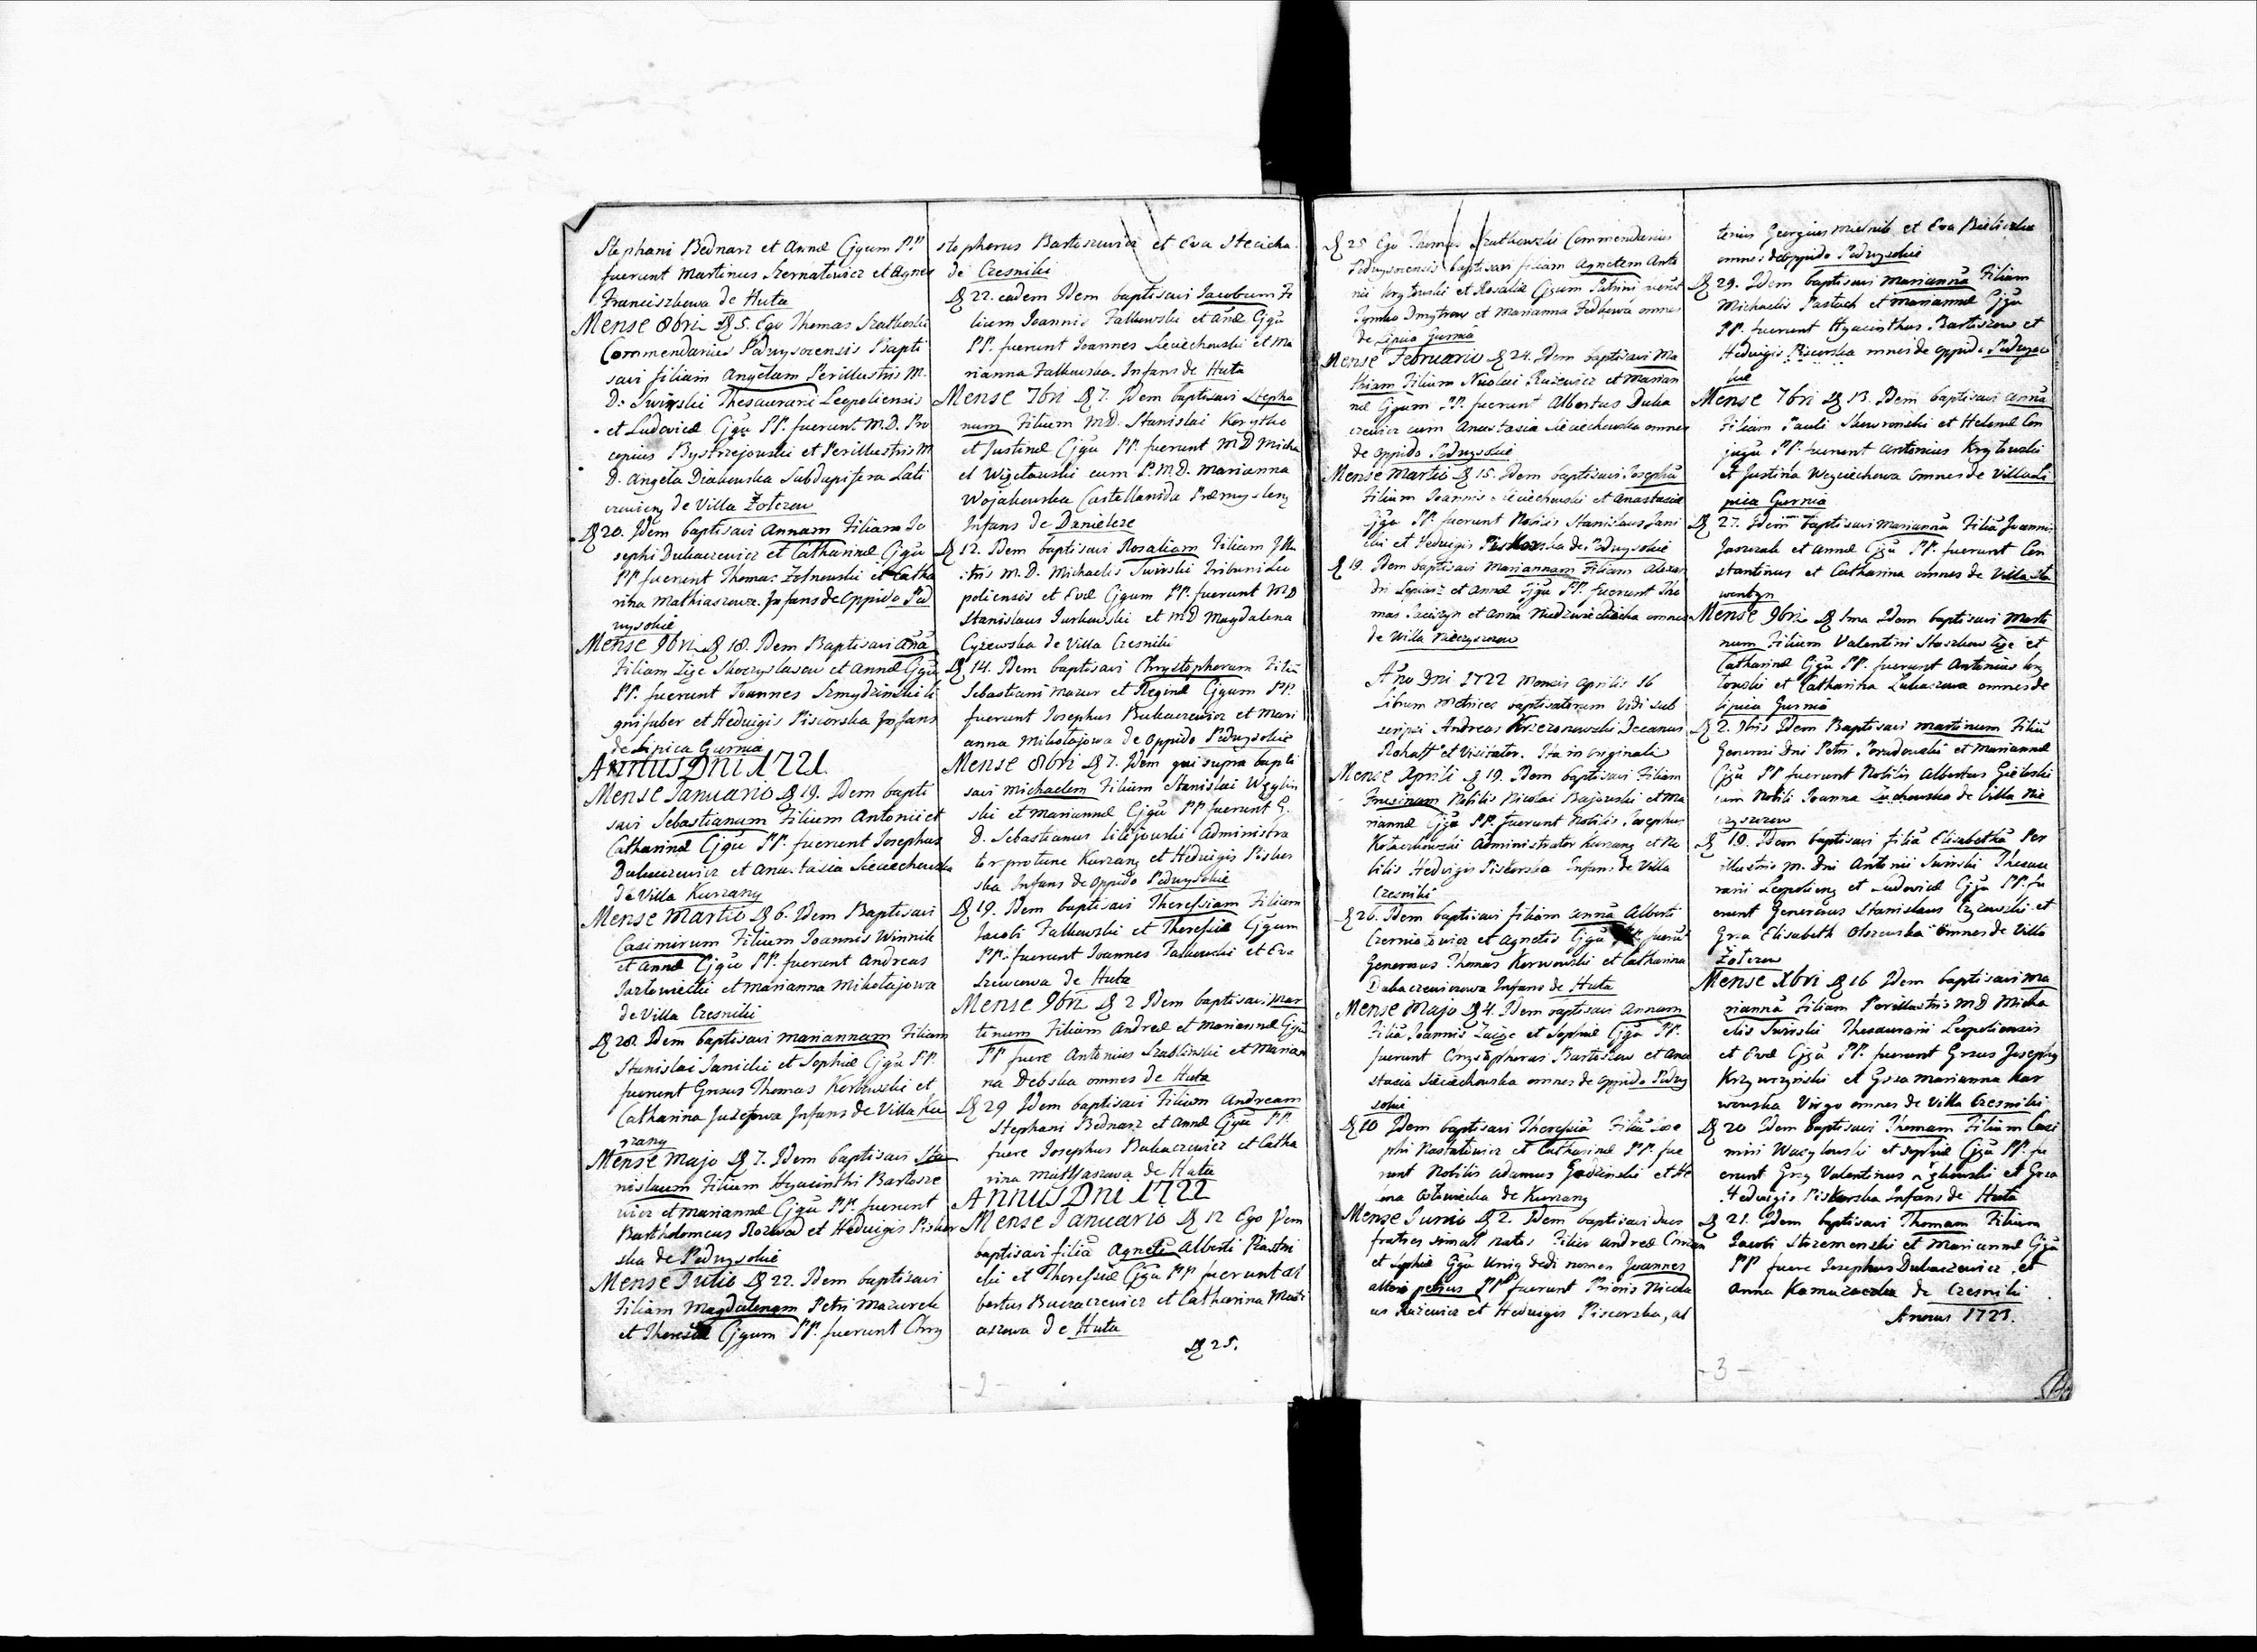 Stephani Bednarz et Annæ Cjgum P.P.
fuerunt Martinus Szernatowicz et Agnes
Franciszkowa de Huta
Mense 8bri D 5. Ego Thomas Szatkowski
Commendarius Podwysocensis Bapti
savi filiam Angelam Perillustris M.
D. Swirski Thesaurarii Leopoliensis
et Ludovicæ Cjgu PP. fuerunt M.D. Pro
copius Bystrzejowski et Perillustris M
D. Angela Diakowska Subdapifera Lati
czevieng de Villa Żołczow
D 20. Idem baptisavi Annam Filiam Jo
sephi Dukaczewicz et Catharinæ Cjgu
PP fuerunt Thomas Zołnowski et Catha
rina Mathiaszowa. Infans de Oppido Pod
wysokie
Mense 9bri D 18. Idem Baptisavi Aña
Filiam Ilge Skoczylasow et Annæ Cjgu
PP. fuerunt Joannes Szmydzinski li
gnifaber et Hedvigis Piscorska Infans
de Lipica Gurnia
Annus Dni 1721
Mense Januario D 19. Idem bapti
savi Sebastianum Filium Antonii et
Catharinæ Cjgu PP. fuerunt Josephus
Dukaczewicz et Anastasia Sieciechowska
de Villa Kurzany
Mense Martio D 6. Idem Baptisavi
Casimirum Filium Joannis Winnik
et Annæ Cjgu PP. fuerunt Andreas
Jazłowiecki et Marianna Mikołajowa
de Villa Czesniki
D 28. Idem baptisavi Mariannam Filiam
Stanislai Janicki et Sophiæ Cjgu PP.
fuerunt Gnsus Thomas Kerwowski et
Catharina Juzefowa Infans de Villa Ku
rzany
Mense Majo D 7. Idem baptisavi Sta
nislaum Filium Hyacinthi Bartosze
wicz et Mariannæ Cjgu PP. fuerunt
Bartholomeus Rozwod et Hedvigis Piskor
ska de Podwysokie
Mense Julio D 22. Idem baptisavi
Filiam Magdalenam Petri Mazurek
et Theresiæ Cjgum PP. fuerunt Chry
stophorus Bartoszewicz et Eva Stecicha
de Czesniki
D 22. eadem Idem baptisavi Jacobum Fi
lium Joannis Falkowski et Añæ Cjgu
PP. fuerunt Joannes Sieciechowski et Ma
rianna Falkowska. Infans de Huta
Mense 7bri D 7. Idem baptisavi Stepha
num Filium MD. Stanislai Korytko
et Justinæ Cjgu PP. fuerunt MD Micha
el Węcławski cum P.M.D. Marianna
Wojakowska Castellanida Præmysleng
Infans de Danielcze
D 12. Idem baptisavi Rosaliam Filiam Illu
stris M.D. Michaelis Swirski Tribuni Leo
poliensis et Evæ Cjgum PP. fuerunt MD
Stanislaus Jurkowski et MD Magdalena
Cyzewska de Villa Czesniki
D 14. Idem baptisavi Chrystophorum Filiũ
Sebastiani Mazur et Reginæ Cjgum PP.
fuerunt Josephus Bukaczewicz et Mari
anna Mikołajowa de Oppido Podwysokie
Mense 8bri D 7. Idem qui supra bapti
savi Michaelem Filium Stanislai Węglin
ski et Mariannæ Cjgu PP fuerunt G.
D. Sebastianus Lilejowski Administra
tor protunc Kurzang et Hedvigis Piskor
ska Infans de Oppido Podwysokie
D 19. Idem baptisavi Theressiam Filiam
Jacobi Falkowski et Theressiæ Cjgum
PP. fuerunt Joannes Falkowski et Eva
Szewcowa de Huta
Mense 9bri D 2 Idem baptisavi Mar
tinum Filium Andreæ et Mariannæ Cjgu
PP fuere Antonius Szablinski et Marian
na Debska omnes de Huta
D 29 Idem baptisavi Filium Andream
Stephani Bednarz et Annæ Cjgu PP.
fuere Josephus Bukaczewicz et Catha
rina Mathiaszowa de Huta
Annus Dni 1722
Mense Januario D 12 Ego Idem
baptisavi filiã Agnetẽ Alberti Piastni
cki et Theressiæ Cjgu PP fuerunt Al
bertus Buczaczewicz et Catharina Mati
aszowa de Huta
D 25.
- 2 -
D 25 Ego Thomas Szatkowski Commendarius
Podwysocensis baptisavi filiam Agnetem Anto
nii Krytowski et Rosaliæ Cjgum Patrini fuerũt
Tymko Dmytrow et Marianna Fedkowa omnes
de Lipica Gurnia
Mense Februario D 24. Idem baptisavi Ma
thiam Filium Nicolai Ruzewicz et Marian
næ Cjgum PP. fuerunt Albertus Duka
czewicz cum Anastasia Sieciechowska omnes
de Oppido Podwysokie
Mense Martio D 15. Idem baptisavi Josephũ
Filium Joannis Sieciechowski et Anastasiæ
Cjgu PP. fuerunt Nobilis Stanislaus Jani
cki et Hedvigis Piskorska de Podwysokie
D 19. Idem baptisavi Mariannam Filiam Alexan
dri Lepiarz et Annæ Cjgu PP. fuerunt Tho
mas Juszczyn et Anna Niedzwiedzicha omnes
de Villa Mieczyszczow
Año Dñi 1722 Mensis Aprilis 16
Librum Metrices baptisatorum Vidi sub
scripsi Andreas Krzczonowski Decanus
Rohatt et Visitator. Ita in originali
Mense Aprili D 19. Idem baptisavi Filiam
Frusinam Nobilis Nicolai Bajowski et Ma
riannæ Cjgu PP. fuerunt Nobilis Josephus
Kołaczkowski Administrator Kurzang et No
bilis Hedvigis Piskorska Infans de Villa
Czesniki
D 26. Idem baptisavi filiam Annã Alberti
Czerniatowicz et Agnetis Cjgu PP. fuerũt
Generosus Thomas Kerwowski et Catharina
Dukaczewiczowa Infans de Huta
Mense Majo D 4. Idem baptisavi Annam
Filiã Joannis Zaięc et Sophiæ Cjgu PP.
fuerunt Chrystophorus Bartoszew et Ana
stasia Sieciechowska omnes de Oppido Podwy
sokie
D 10 Idem baptisavi Theressiã Filiã Jose
phi Nastatowicz et Catharinæ PP. fue
runt Nobilis Adamus Godzinski et He
lena Ostowiecka de Kurzang
Mense Junio D 2. Idem baptisavi duos
fratres simul natos Filios Andreæ Cmzan
et Sophiæ Cjgu Uniq dedi nomen Joannes
alteri Petrus PP fuerunt Prioris Nicola
us Ruzewicz et Hedvigis Piscorska, al
terius Georgius Mielnik et Eva Bielicka
omnes de Oppido Podwysokie
D 29. Idem baptisavi Mariannã Filiam
Michaelis Pastuch et Mariannæ Cjgu
PP. fuerunt Hyacinthus Bartiszow et
Hedvigis Piscorska omnes de oppido Podwyso
kie
Mense 7bri D 13. Idem baptisavi Annã
Filiam Pauli Skowronski et Helenæ Con
jugu PP. fuerunt Antonius Krytowski
et Justina Woyciechowa omnes de Villa Li
pica Gurnia
D 27. Idem baptisavi Mariannã Filiã Joannis
Jaszczak et Annæ Cjgu PP. fuerunt Con
stantinus et Catharina omnes de Villa Sta
wentyn
Mense 9bri D 1ma Idem baptisavi Marti
num Filium Valentini Staszkow Ilge et
Catharinæ Cjgu PP. fuerunt Antonius Kry
towski et Catharina Lukaszowa omnes de
Lipica Gurnia
D 2. 9bris Idem Baptisavi Martinum Filiũ
Generosi Dni Petri Poradowski et Mariannæ
Cjgu PP fuerunt Nobilis Albertus Giełoski
cum Nobili Joanna Zuchowska de Villa Mie
czyszczow
D 19. Idem baptisavi filiã Elisabethã Per
illustris M. Dni Antonii Swirski Thesau
rarii Leopolieng et Ludovicæ Cjgu PP. fu
erunt Generosus Stanislaus Czyzewski et
Grsa Elisabeth Olszewska omnes de Villa
Żołczow
Mense Xbri D 16 Idem baptisavi Ma
riannã Filiam Perillustris MD Micha
elis Swirski Thesaurarii Leopoliensis
et Evæ Cjgu PP. fuerunt Grsus Josephus
Krzywczynski et Grsa Marianna Kar
wowska Virgo omnes de Villa Czesniki
D 20 Idem baptisavi Thomam Filium Casi
miri Wasylowski et Sophiæ Cjgu PP. fu
erunt Grsq Valentinus et Grsa
Hedvigis Piskorska Infans de Huta
D 21. Idem baptisavi Thomam Filium
Jacobi Strzemenski et Mariannæ Cjgu
PP fuere Josephus Dukaczewicz et
Anna Kamazaczka de Czesniki
Annus 1723.
- 3 -